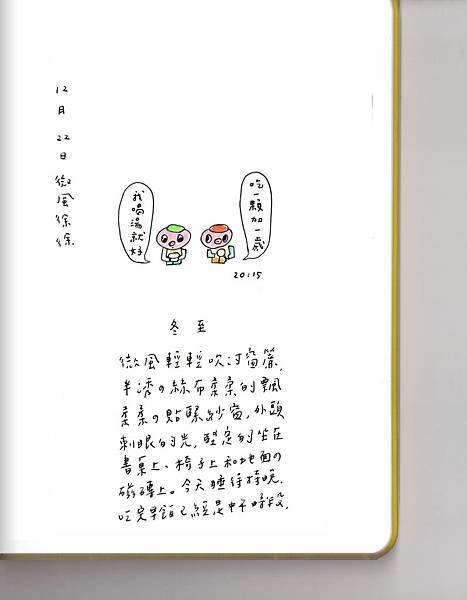 12月22日 微風徐徐
吃一顆加一歲
我喝湯就好
20:15
冬至
微風輕輕吹河窗簾,
半透の絲布柔柔的飄
柔柔の貼緊紗窗,外頭
刺眼的光,堅定的坐在
書桌上、椅子上和地面の
磁磚上。今天睡得特晚.
吃完早飯已經是中午時段.